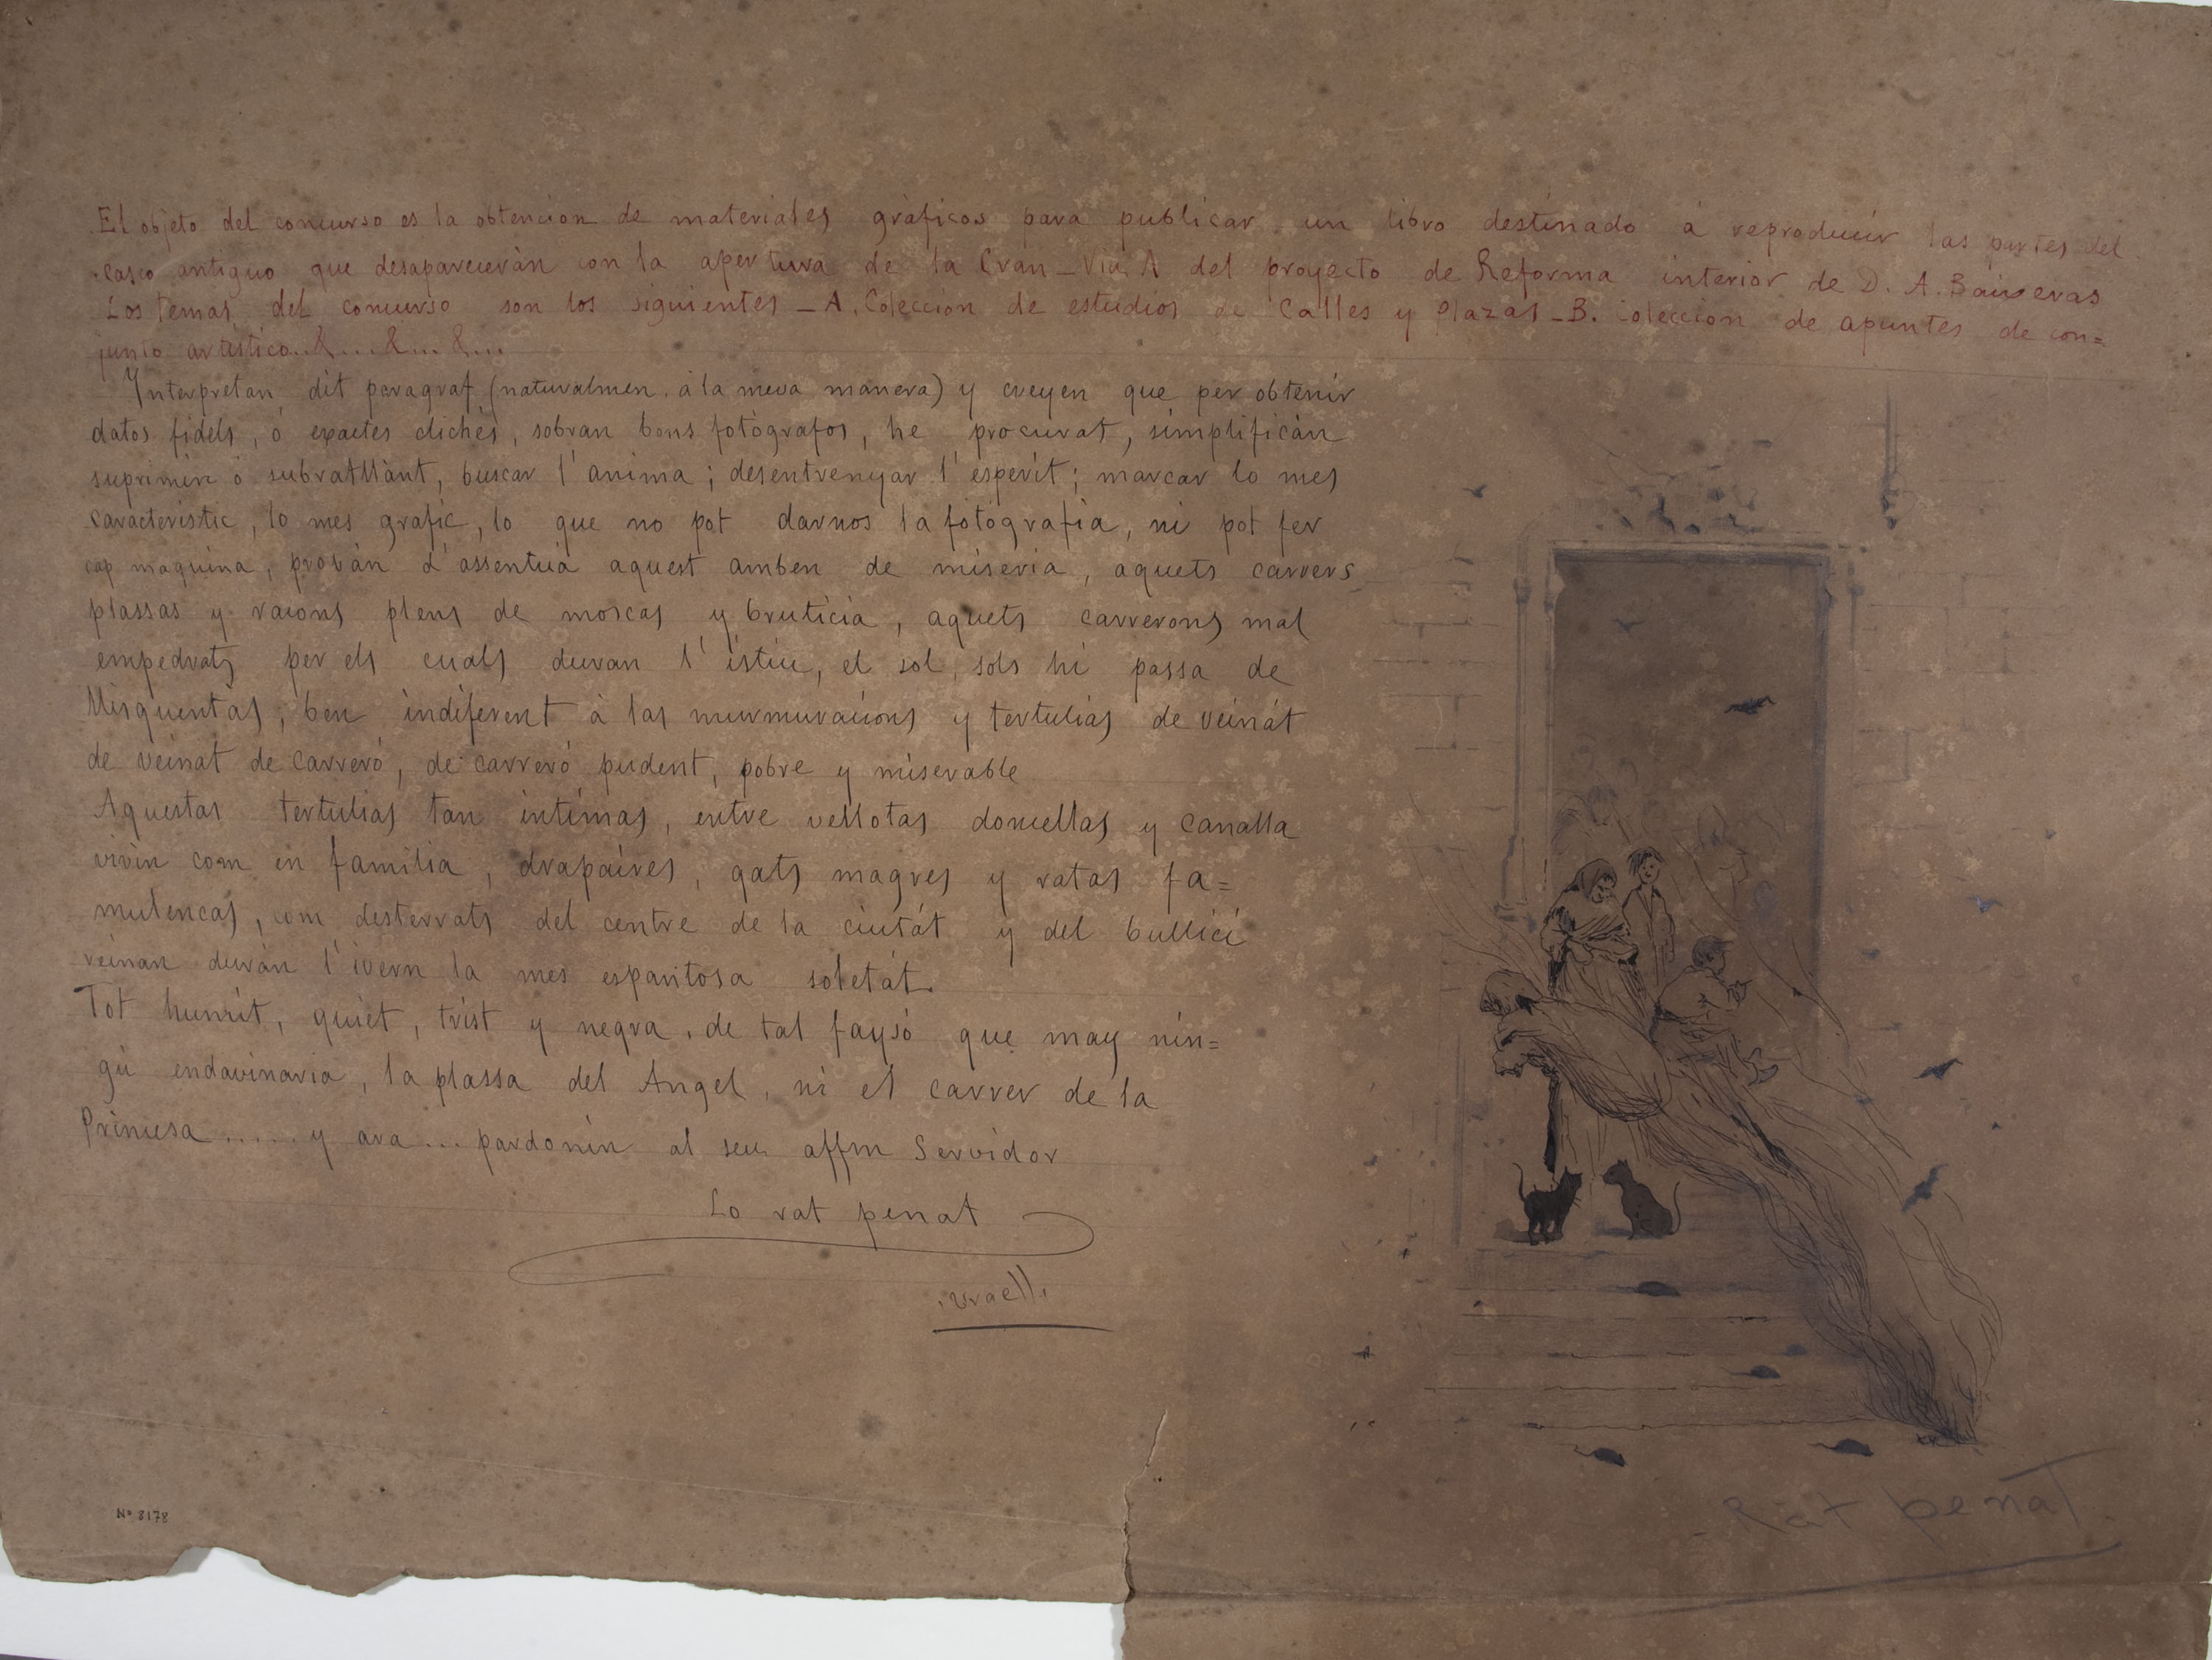 El objeto del concurso es la obtencion de materiales gráficos para publicar un libro destinado á reproducir las partes del
casco antiguo que desaparecerán con la apertura de la Gran_Via A del proyecto de Reforma interior de D. A. Baixeras
Los temas del concurso son los siguientes _ A. Colección de estudios de Calles y Plazas _ B. Coleccion de apuntes de con=
junto artístico..&...&...&...
Interpretan dit paragraf (naturalmen, á la meva manera) y creyen que per obtenir
datos fidels, ó exactes clichés, sobran bons fotógrafos, he procurat, simplificán
suprimin ó subratllánt, buscar l'anima; desentrenyar l'esperit; marcar lo mes
caracteristic, lo mes grafic, lo que no pot darnos la fotografía, ni pot fer
cap maquina, probán d'assentuá aquest amben de miseria, aquets carrers
plassas y racons plens de moscas y bruticia, aquets carrerons mal
empedrats per els cuals duran l'istiu, el sol, sols hi passa de
Misquentas, ben indiferent á las murmuracions y tertulias de veinát
de veinat de carreró, de carreró pudent, pobre y miserable
Aquestas tertulias tan intímas, entre vellotas doncellas y canalla
vivin com en familia, drapaíres, gats magres y ratas fa=
mulencas, com desterrats del centre de la ciutát y del bullici
reinan durán l'ivern la mes espantosa soletát.
Tot humit, quiet, trist y negra, de tal faysó que may nin=
gú endavinaria, la plassa del Angel, ni el carrer de la
Princesa ..... y ara ... pardonin al seu affm Servidor
Lo rat penat
Nº 8178
Rat penat